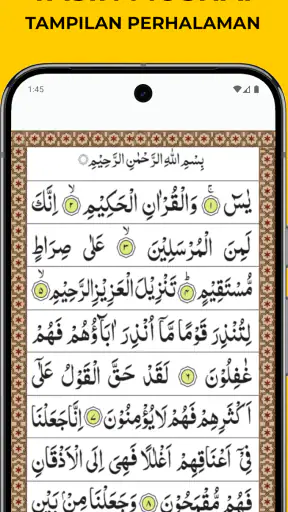 TAMPILAN PERHALAMAN
1:45
بِسْمِ اللهِ الرَّحْمٰنِ الرَّحِيْمِ
يٰسٓ ۚ ١ وَالْقُرْاٰنِ الْحَكِيْمِ ۙ ٢ اِنَّكَ
لَمِنَ الْمُرْسَلِيْنَ ۙ ٣ عَلٰى صِرَاطٍ
مُّسْتَقِيْمٍ ۗ ٤ تَنْزِيْلَ الْعَزِيْزِ الرَّحِيْمِ ۙ ٥
لِتُنْذِرَ قَوْمًا مَّآ اُنْذِرَ اٰبَاۤؤُهُمْ فَهُمْ
غٰفِلُوْنَ ٦ لَقَدْ حَقَّ الْقَوْلُ عَلٰٓى
اَكْثَرِهِمْ فَهُمْ لَا يُؤْمِنُوْنَ ٧ اِنَّا جَعَلْنَا
فِيْٓ اَعْنَاقِهِمْ اَغْلٰلًا فَهِيَ اِلَى الْاَذْقَانِ
فَهُمْ مُّقْمَحُوْنَ ٨ وَجَعَلْنَا مِنْۢ بَيْنِ